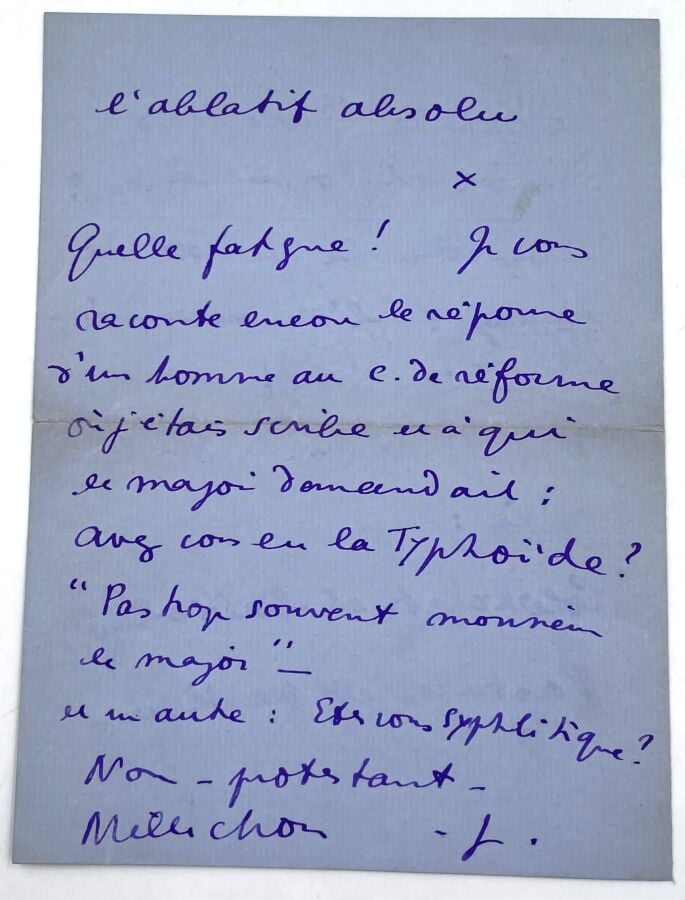 l'ablatif absolu
×
Quelle fatigue ! Je vous
raconte encore la réponse
d'un homme au c. de réforme
où j'étais scribe et à qui
le major demandait :
avez vous eu la Typhoïde ?
"Pas trop souvent monsieur
le major" —
et un autre : Etes vous syphilitique ?
Non - protestant -
Mille choses - J.